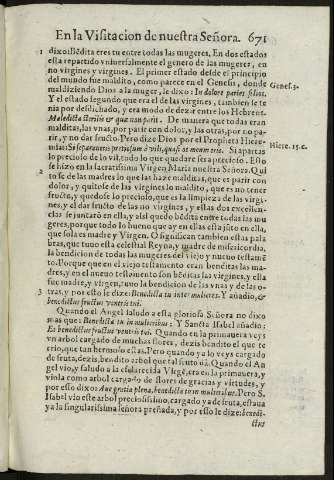 En la Visitacion de nuestra Señora. 671
1 dixo: Bẽdita eres tu entre todas las mugeres. En dos estados
esta repartido vniuersalmente el genero de las mugeres, en
no virgines y virgines. El primer estado desde el principio
del mundo fue maldito, como parece en el Genesis, donde
maldiziendo Dios a la muger, le dixo: In dolore paries filios. Genes. 3.
Y el estado segundo que era el de las virgines, tambien se te
nia por desdichado, y era modo de dezir entre los Hebreos.
Maledicta sterilis & quæ non parit. De manera que todas eran
malditas, las vnas, por parir con dolor, y las otras, por no pa-
rir, y no dar fructo. Pero dize Dios por el Propheta Hiere-
mias: Si separaueris pretiosum à vili, quasi os meum eris. Si apartas Hiere. 15. c.
lo precioso de lo vil, todo lo que quedare sera precioso. Esto
se hizo en la sacratissima Virgen Maria nuestra Señora. Qui
2 tose de las madres lo que las haze malditas, que es parir con
dolor, y quitose de las virgines lo maldito, que es no tener
fructo, y quedose lo precioso, que es la limpieza de las virgi-
nes, y el dar fructo de las no virgines, y estas dos excellen-
cias se juntarõ en ella, y assi quedo bẽdita entre todas las mu
geres, porque todo lo bueno que ay en ellas esta jũto en ella,
que sola es madre y Virgen. O significan tambien estas pala
bras, que tuuo esta celestial Reyna, y madre de misericordia,
la bendicion de todas las mugeres del viejo y nueuo testamẽ
to. Porque que en el viejo testamento eran benditas las ma-
dres, y en el nueuo testamento son bẽditas las virgines, y ella
fue madre, y virgen, tuuo la bendicion de las vnas y de las o-
3 tras, y por esto se dize: Benedicta tu inter mulieres. Y añadio, &
benedictus fructus ventris tui.
Quando el Angel saludo a esta gloriosa Señora no dixo
mas que: Benedicta tu in mulieribus: Y Sancta Isabel añadio;
Et benedictus fructus ventris tui. Quando en la primauera veys
vn arbol cargado de muchas flores, dezis bendito el que te
crio, que tan hermoso estas. Pero quando ya lo veys cargado
de fruta, dezis, bendito arbol que tal fruto dà. Quando el An
gel vio, y saludo a la esclarecida Virgẽ, era en la primauera, y
viola como arbol cargado de flores de gracias y virtudes, y
por esso dixo: Aue gratia plena, benedicta tu in mulieribus. Pero S.
Isabel vio este arbol preciosissimo, cargado ya de fruta, estaua
ya la singularissima señora preñada, y por esso le dize: benedi-
ctus